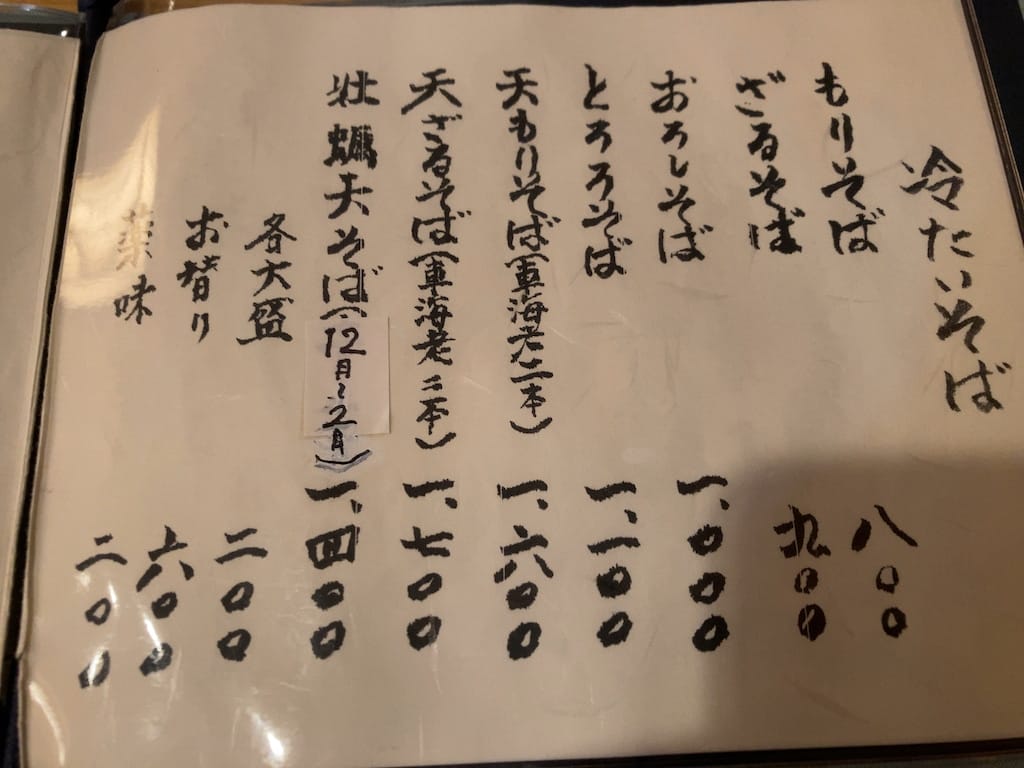 冷たいそば
もりそば 八〇〇
ざるそば 九〇〇
おろしそば 一、〇〇〇
とろろそば 一、一〇〇
天もりそば(車海老二本) 一、六〇〇
天ざるそば(車海老二本) 一、七〇〇
牡蠣天そば(12月〜2月) 一、四〇〇
各大盛 二〇〇
お替り 六〇〇
薬味 二〇〇